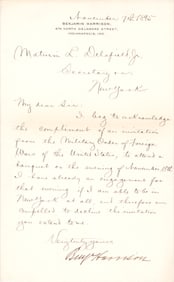 November 7th 1895
BENJAMIN HARRISON,
674 NORTH DELAWARE STREET,
INDIANAPOLIS, IND.
Maturin L. Delafield Jr.
Secretary &c.
New York
My dear Sir:
I beg to acknowledge
the compliment of an invitation
from the Military Order of Foreign
Wars of the United States, to attend a
banquet on the evening of November 18th
I have already an engagement for
that evening if I am able to be in
New York at all and therefore am
compelled to decline the invitation
you extend to me.
Very truly yours
Benj Harrison